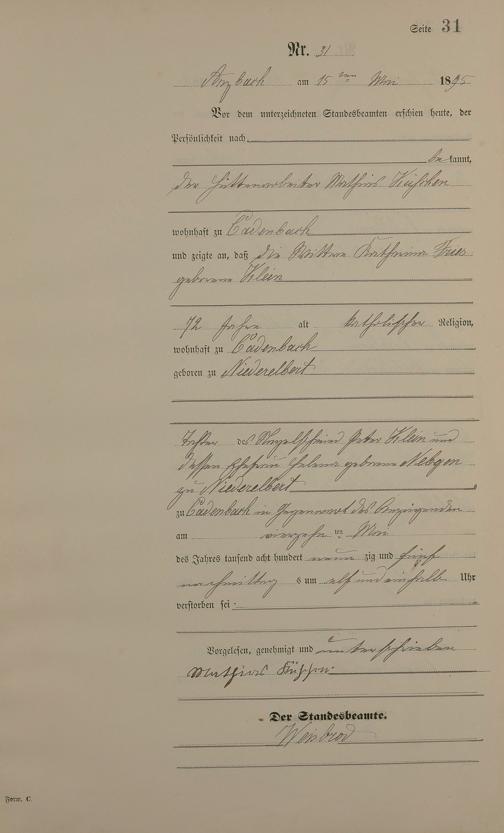 Seite 31
Nr. 31
Arzbach am 15ten Mai 1895
Vor dem unterzeichneten Standesbeamten erschien heute, der
Persönlichkeit nach
be kannt,
der Hüttenarbeiter Mathias
wohnhaft zu Cadenbach
und zeigte an, daß die Wittwe Katharina
geborene Klein
72 Jahre alt katholischer Religion,
wohnhaft zu Cadenbach
geboren zu Niederelbert
Tochter des Peter Klein und
dessen Ehefrau Helena geborene
zu Niederelbert
zu Cadenbach in Gegenwart des Anzeigenden
am vierzehn ten Mai
des Jahres tausend acht hundert neun zig und fünf
nachmittag s um elf und einhalb Uhr
verstorben sei.
Vorgelesen, genehmigt und unterschrieben
Mathias
Der Standesbeamte.
Weisbrod
Form. C.